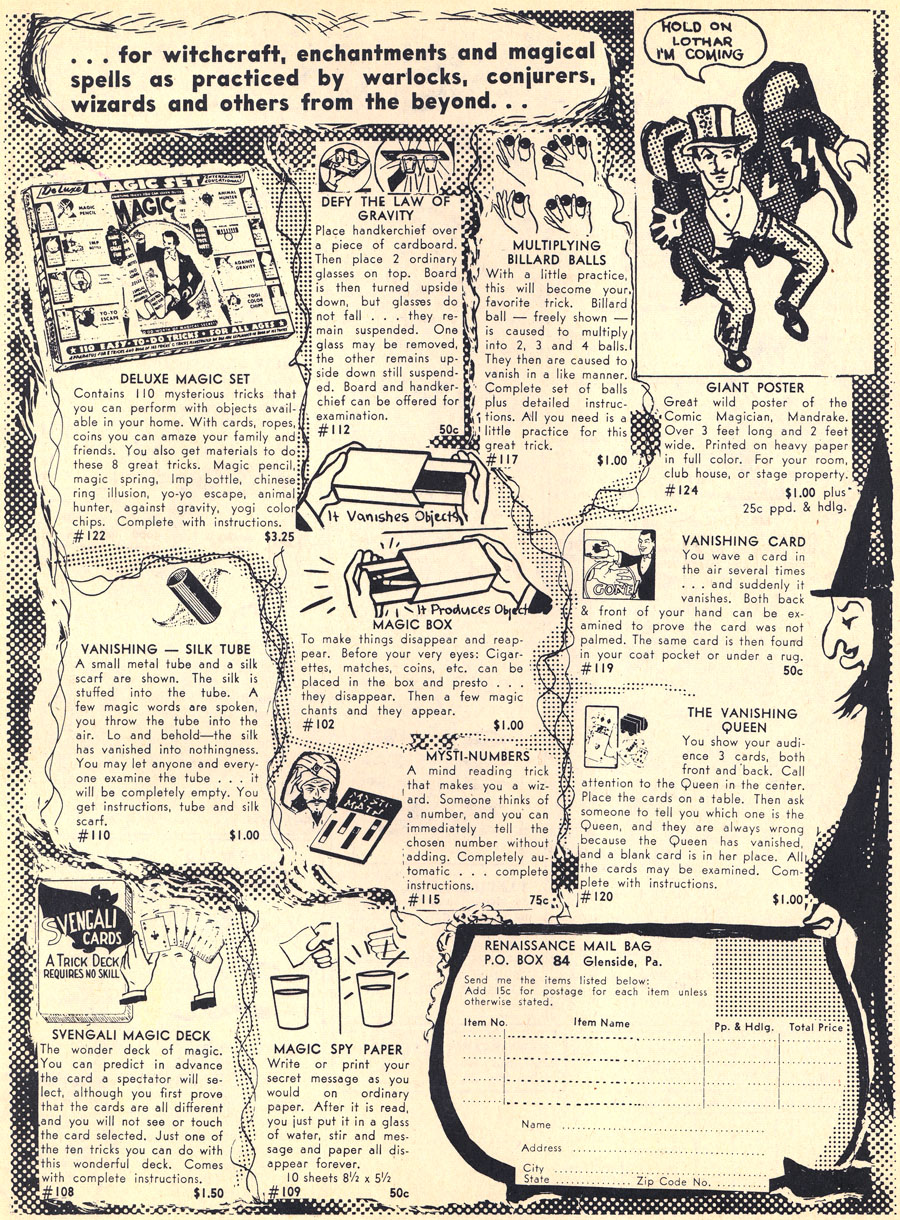 . . . for witchcraft, enchantments and magical
spells as practiced by warlocks, conjurers,
wizards and others from the beyond. . .
HOLD ON
LOTHAR
I'M COMING
DeLuxe MAGIC SET
MAGIC
MAGIC
PENCIL
IMP
BOTTLE
YO-YO
ESCAPE
ANIMAL
HUNTER
AGAINST
GRAVITY
YOGI
COLOR
CHIPS
110 EASY-TO-DO TRICKS • FOR ALL AGES
DELUXE MAGIC SET
Contains 110 mysterious tricks that
you can perform with objects avail-
able in your home. With cards, ropes,
coins you can amaze your family and
friends. You also get materials to do
these 8 great tricks. Magic pencil,
magic spring, Imp bottle, chinese
ring illusion, yo-yo escape, animal
hunter, against gravity, yogi color
chips. Complete with instructions.
#122 $3.25
DEFY THE LAW OF
GRAVITY
Place handkerchief over
a piece of cardboard.
Then place 2 ordinary
glasses on top. Board
is then turned upside
down, but glasses do
not fall . . . they re-
main suspended. One
glass may be removed,
the other remains up-
side down still suspend-
ed. Board and handker-
chief can be offered for
examination.
#112 50c
MULTIPLYING
BILLARD BALLS
With a little practice,
this will become your
favorite trick. Billard
ball — freely shown —
is caused to multiply
into 2, 3 and 4 balls.
They then are caused to
vanish in a like manner.
Complete set of balls
plus detailed instruc-
tions. All you need is a
little practice for this
great trick.
#117 $1.00
GIANT POSTER
Great wild poster of the
Comic Magician, Mandrake.
Over 3 feet long and 2 feet
wide. Printed on heavy paper
in full color. For your room,
club house, or stage property.
#124 $1.00 plus
25c ppd. & hdlg.
It Vanishes Objects
It Produces Objects
MAGIC BOX
To make things disappear and reap-
pear. Before your very eyes: Cigar-
ettes, matches, coins, etc. can be
placed in the box and presto . . .
they disappear. Then a few magic
chants and they appear.
#102 $1.00
GONE
VANISHING CARD
You wave a card in
the air several times
. . . and suddenly it
vanishes. Both back
& front of your hand can be ex-
amined to prove the card was not
palmed. The same card is then found
in your coat pocket or under a rug.
#119 50c
VANISHING — SILK TUBE
A small metal tube and a silk
scarf are shown. The silk is
stuffed into the tube. A
few magic words are spoken,
you throw the tube into the
air. Lo and behold—the silk
has vanished into nothingness.
You may let anyone and every-
one examine the tube . . . it
will be completely empty. You
get instructions, tube and silk
scarf.
#110 $1.00
MYSTI
MATH
MYSTI-NUMBERS
A mind reading trick
that makes you a wiz-
ard. Someone thinks of
a number, and you can
immediately tell the
chosen number without
adding. Completely au-
tomatic . . . complete
instructions.
#115 75c
THE VANISHING
QUEEN
You show your audi-
ence 3 cards, both
front and back. Call
attention to the Queen in the center.
Place the cards on a table. Then ask
someone to tell you which one is the
Queen, and they are always wrong
because the Queen has vanished,
and a blank card is in her place. All
the cards may be examined. Com-
plete with instructions.
#120 $1.00
SVENGALI
CARDS
A TRICK DECK
REQUIRES NO SKILL
SVENGALI MAGIC DECK
The wonder deck of magic.
You can predict in advance
the card a spectator will se-
lect, although you first prove
that the cards are all different
and you will not see or touch
the card selected. Just one of
the ten tricks you can do with
this wonderful deck. Comes
with complete instructions.
#108 $1.50
MAGIC SPY PAPER
Write or print your
secret message as you
would on ordinary
paper. After it is read,
you just put it in a glass
of water, stir and mes-
sage and paper all dis-
appear forever.
10 sheets 8½ x 5½
#109 50c
RENAISSANCE MAIL BAG
P.O. BOX 84 Glenside, Pa.
Send me the items listed below:
Add 15c for postage for each item unless
otherwise stated.
Item No. Item Name Pp. & Hdlg. Total Price
Name
Address
City
State Zip Code No.